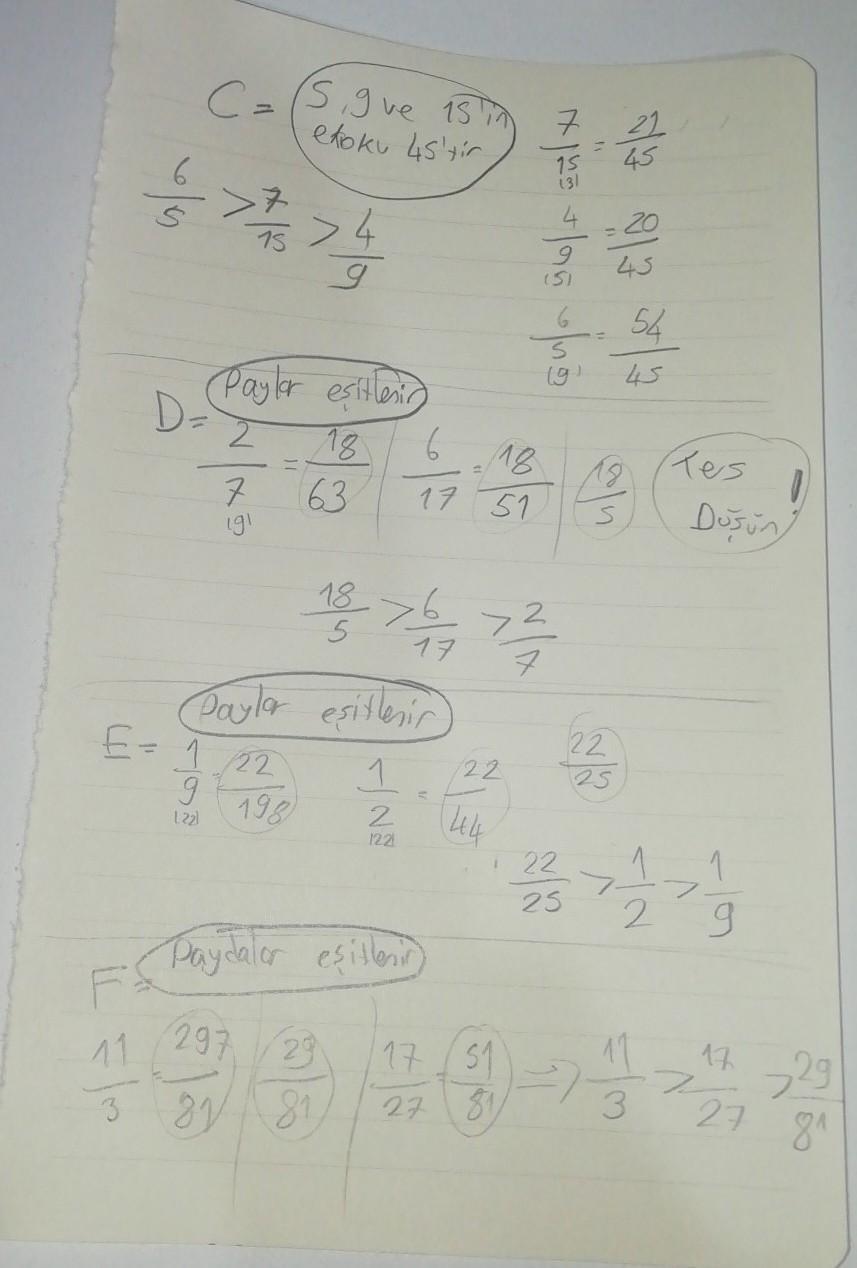 C = 5,9 ve 15'in
ekoku 45'tir
7/15 = 21/45
(3)
6/5 > 7/15 > 4/9
4/9 = 20/45
(5)
6/5 = 54/45
(9)
D = Paylar eşitlenir
2/7 = 18/63 | 6/17 = 18/51 | 18/5
(9)
Ters
Düşün!
18/5 > 6/17 > 2/7
E = Paylar eşitlenir
1/9 = 22/198
(22)
1/2 = 22/44
(22)
22/25
22/25 > 1/2 > 1/9
F = Paydalar eşitlenir
11/3 = 297/81 | 29/81 | 17/27 = 51/81 => 11/3 > 17/27 > 29/81